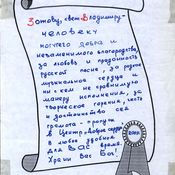 Зотову, свет Владимиру —
человеку
могучего добра и
незаменимого благородства,
за любовь и преданность
русской песне, за родное
музыкальное сердце и
ни с кем не сравнимую
манеру исполнения, за
творческое горение, честь
и достоинство сея
грамота - пропуск
в Центр в любое
удобное
для Вас время.
Храни Вас Бог!